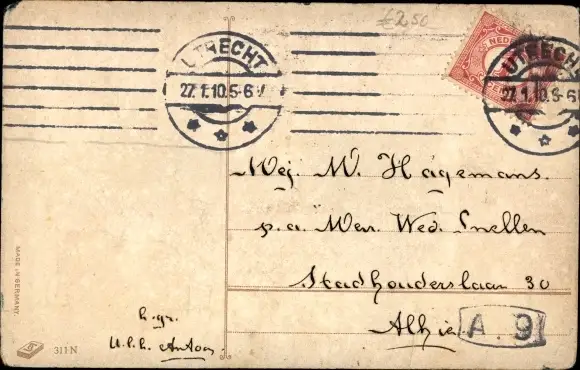 £2,50
UTRECHT
27.1.10.5-6V
NED
CEN
UTRECHT
27.1.10.5-6
Mej. W. Hagemans.
p.a. Mevr. Wed. Snellen
Stadhouderslaan 30
Alhier
A. 9
h.gr.
Anton.
MADE IN GERMANY.
311N